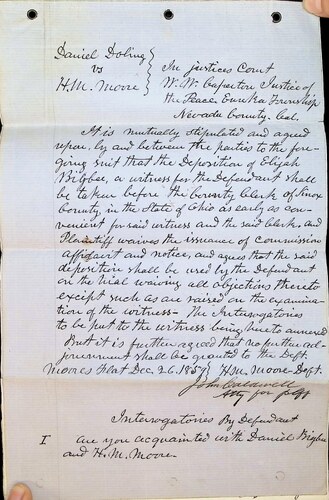 Daniel Doling
vs
H. M. Moore
In justices Court
W. W. Caperton Justice of
the Peace Eureka Township
Nevada County. Cal.
It is mutually stipulated and agreed
upon, by and between the parties to the for-
going suit that the Deposition of Elijah
Bigbee, a witness for the Defendant shall
be taken before the County Clerk of Knox
County, in the State of Ohio as early as con-
venient for said witness and the said Clerk, and
Plaintiff waives the issuance of commission
affidavit and notice, and agrees that the said
deposition shall be used by the Defendant
on the trial waiving all objections thereto
except such as are raised on the examina-
tion of the witness - The Interogatories
to be put to the witness being hereto annexed
But it is further agreed that no further ad-
journment shall be granted to the Deft.
Moores Flat Dec. 26. 1857 H. M. Moore Deft.
John Caldwell
Atty for plff
Interrogatories By Defendant
I are you acquainted with Daniel
and H. M. Moore-